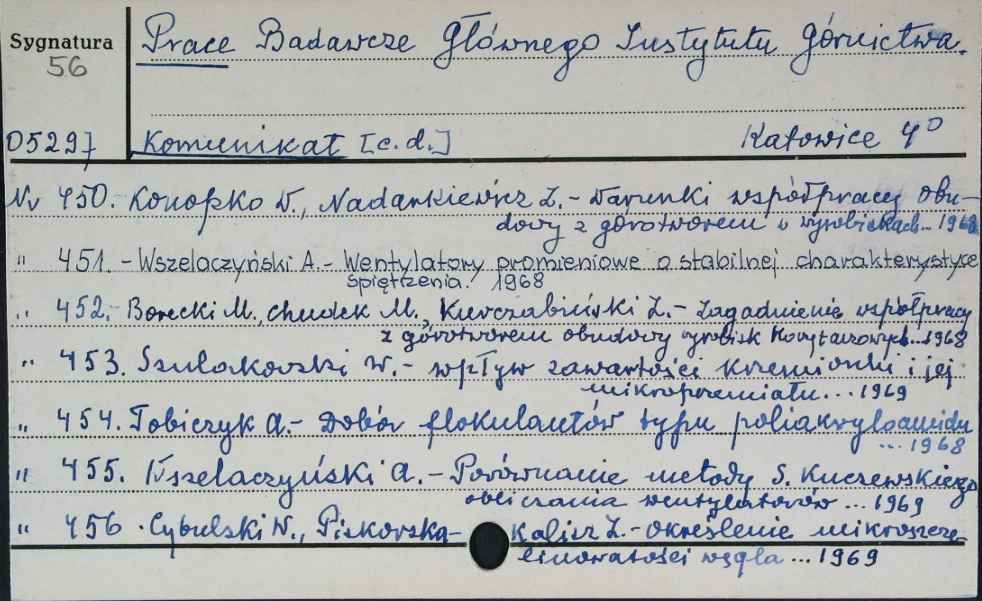 Sygnatura
56
Prace Badawcze Głównego Instytutu Górnictwa.
05297
Komunikat [c.d.] Katowice 4°
Nr 450. Konopko W., Nadarkiewicz Z. - Warunki współpracy obu-
dowy z górotworem w wyrobiskach... 1968
" 451. - Wszelaczyński A. - Wentylatory promieniowe o stabilnej charakterystyce
spiętrzenia. 1968
" 452. - Borecki M., Chudek M., Kurczabiński Z. - Zagadnienie współpracy
z górotworem obudowy wyrobisk korytarzowych... 1968
" 453. Szulakowski W. - Wpływ zawartości krzemionki i jej
... 1969
" 454. Tobiczyk A. - Dobór flokulantów typu poliakryloamidu
... 1968
" 455. Wszelaczyński A. - Porównanie metody S. Kuczewskiego
obliczania wentylatorów ... 1969
" 456. Cybulski W., Piskorska-Kalisz Z. - Określenie mikroszcze-
linowatości węgla ... 1969